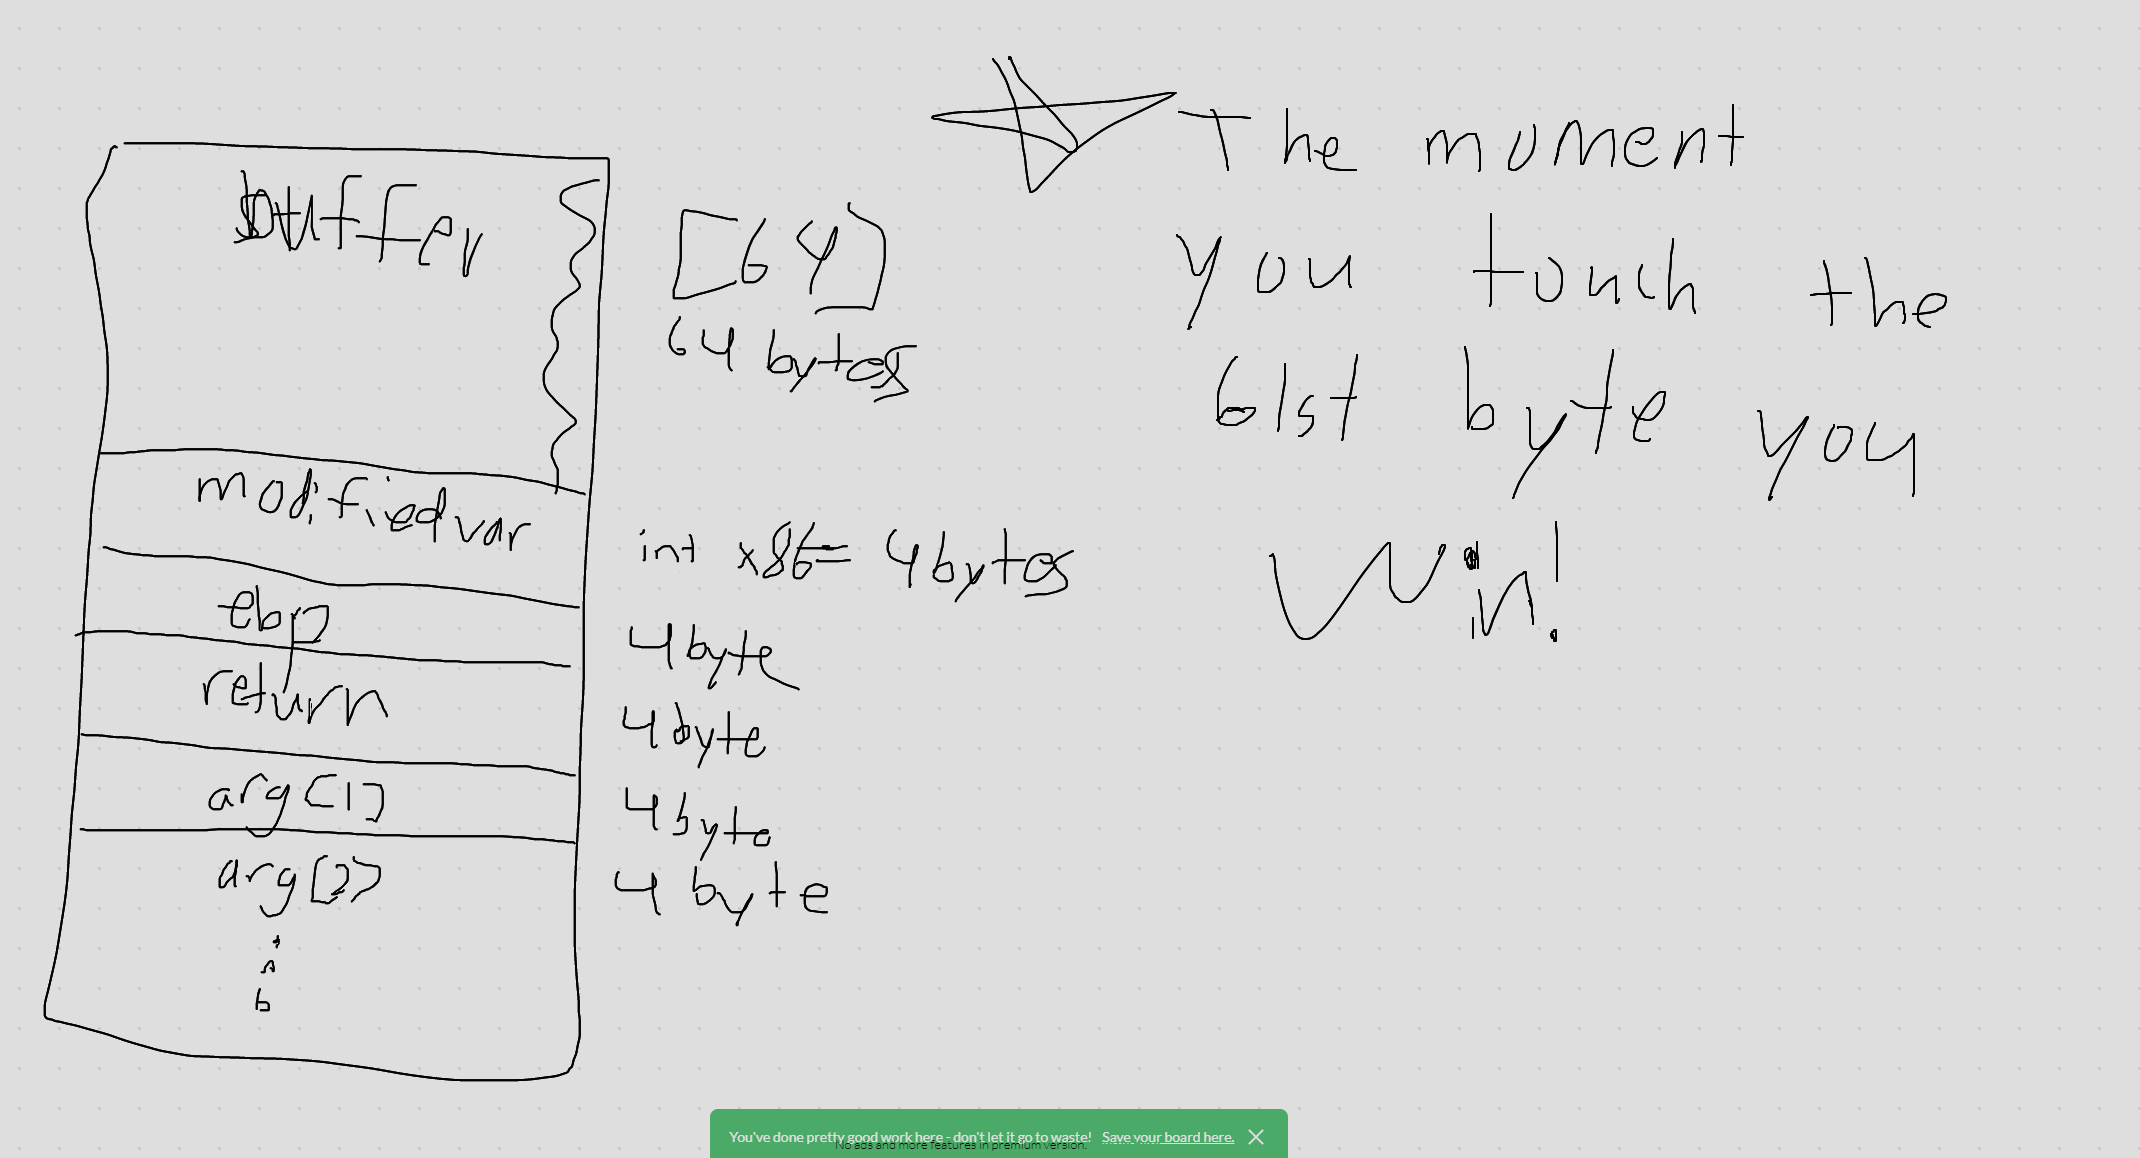 buffer
[64]
64 bytes
modifiedvar
int x86= 4bytes
ebp
4byte
return
4byte
arg[1]
4byte
arg[2]
4 byte
The moment
you touch the
61st byte you
win!
You've done pretty good work here - don't let it go to waste! Save your board here.
No ads and more features in premium version.